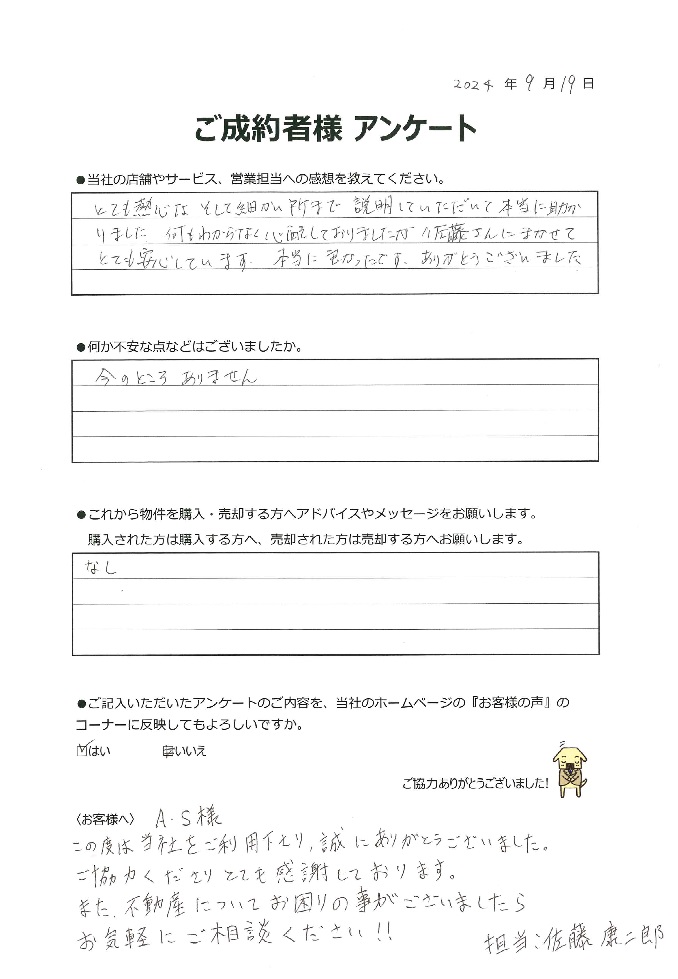 2024 年 9 月 19 日
ご成約者様 アンケート
●当社の店舗やサービス、営業担当への感想を教えてください。
とても熱心な そして細かい所まで 説明していただいて 本当に助か
りました 何もわからなく心配しておりましたが 佐藤さんにまかせて
とても安心しています。 本当に良かったです。 ありがとうございました
●何か不安な点などはございましたか。
今のところ ありません
●これから物件を購入・売却する方へアドバイスやメッセージをお願いします。
購入された方は購入する方へ、売却された方は売却する方へお願いします。
なし
●ご記入いただいたアンケートのご内容を、当社のホームページの『お客様の声』の
コーナーに反映してもよろしいですか。
☑はい □いいえ
ご協力ありがとうございました!
〈お客様へ〉 A.S様
この度は当社をご利用下さり、誠にありがとうございました。
ご協力くださりとても感謝しております。
また、不動産についてお困りの事がございましたら
お気軽にご相談ください!!
担当:佐藤 康二郎